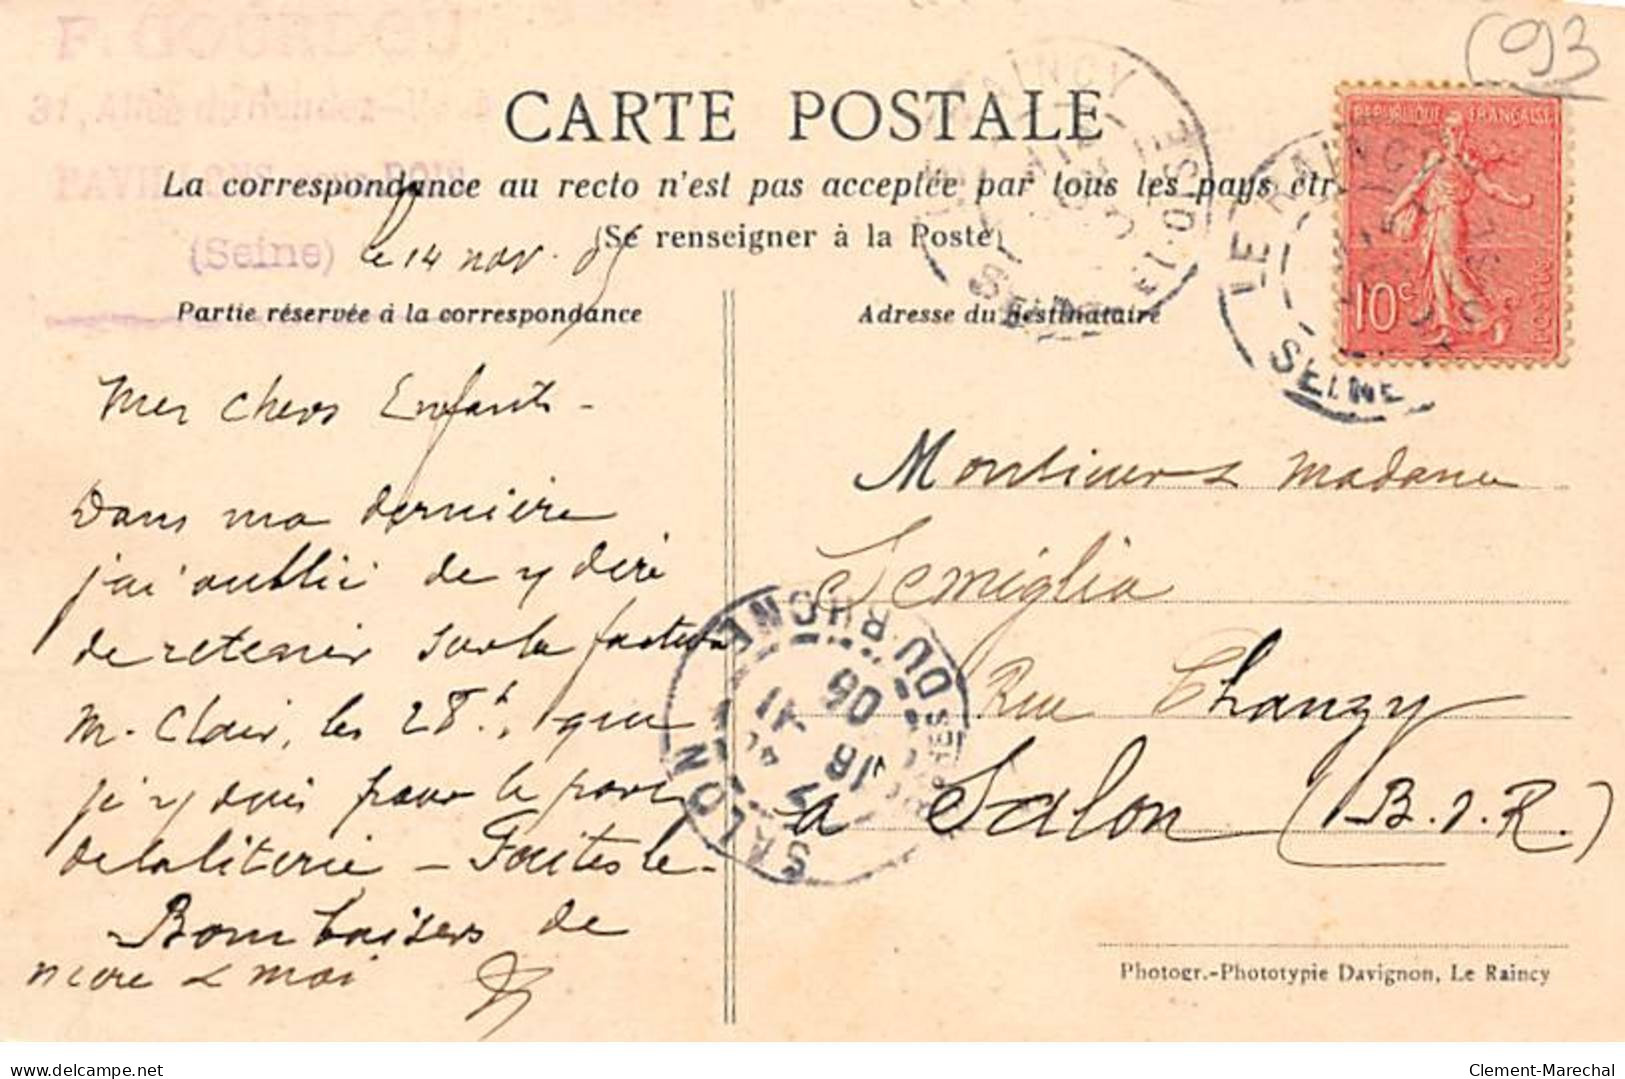 F. GOURDOU
31, Allée du Rendez-Vous
PAVILLONS-sous-BOIS
(Seine)
(93
CARTE POSTALE
La correspondance au recto n'est pas acceptée par tous les pays étr
(Se renseigner à la Poste)
le 14 nov. 05
Partie réservée à la correspondance
Mes chers Enfants -
Dans ma dernière
j'ai oublié de y dire
de retenir sur la facture
M. Clair, les 28 f, que
j'y dois pour le port
de la literie - Faites le -
Bons baisers de
mère & moi
Adresse du Destinataire
Monsieur & Madame
Semiglia
Rue Chanzy
à Salon (B.d.R.)
LE RAINCY
SEINE-ET-OISE
LE RAINCY
SEINE
REPUBLIQUE FRANÇAISE
10c
POSTES
SALON
BOUCHES DU RHONE
18 11
05
Photogr.-Phototypie Davignon, Le Raincy
delcampe.net
Clement-Marechal